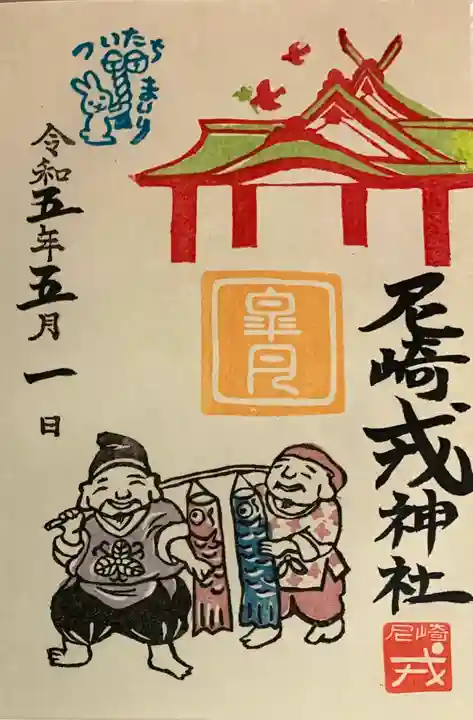 尼崎戎神社
尼崎
戎
皐月
ついたちまいり
令和五年五月一日